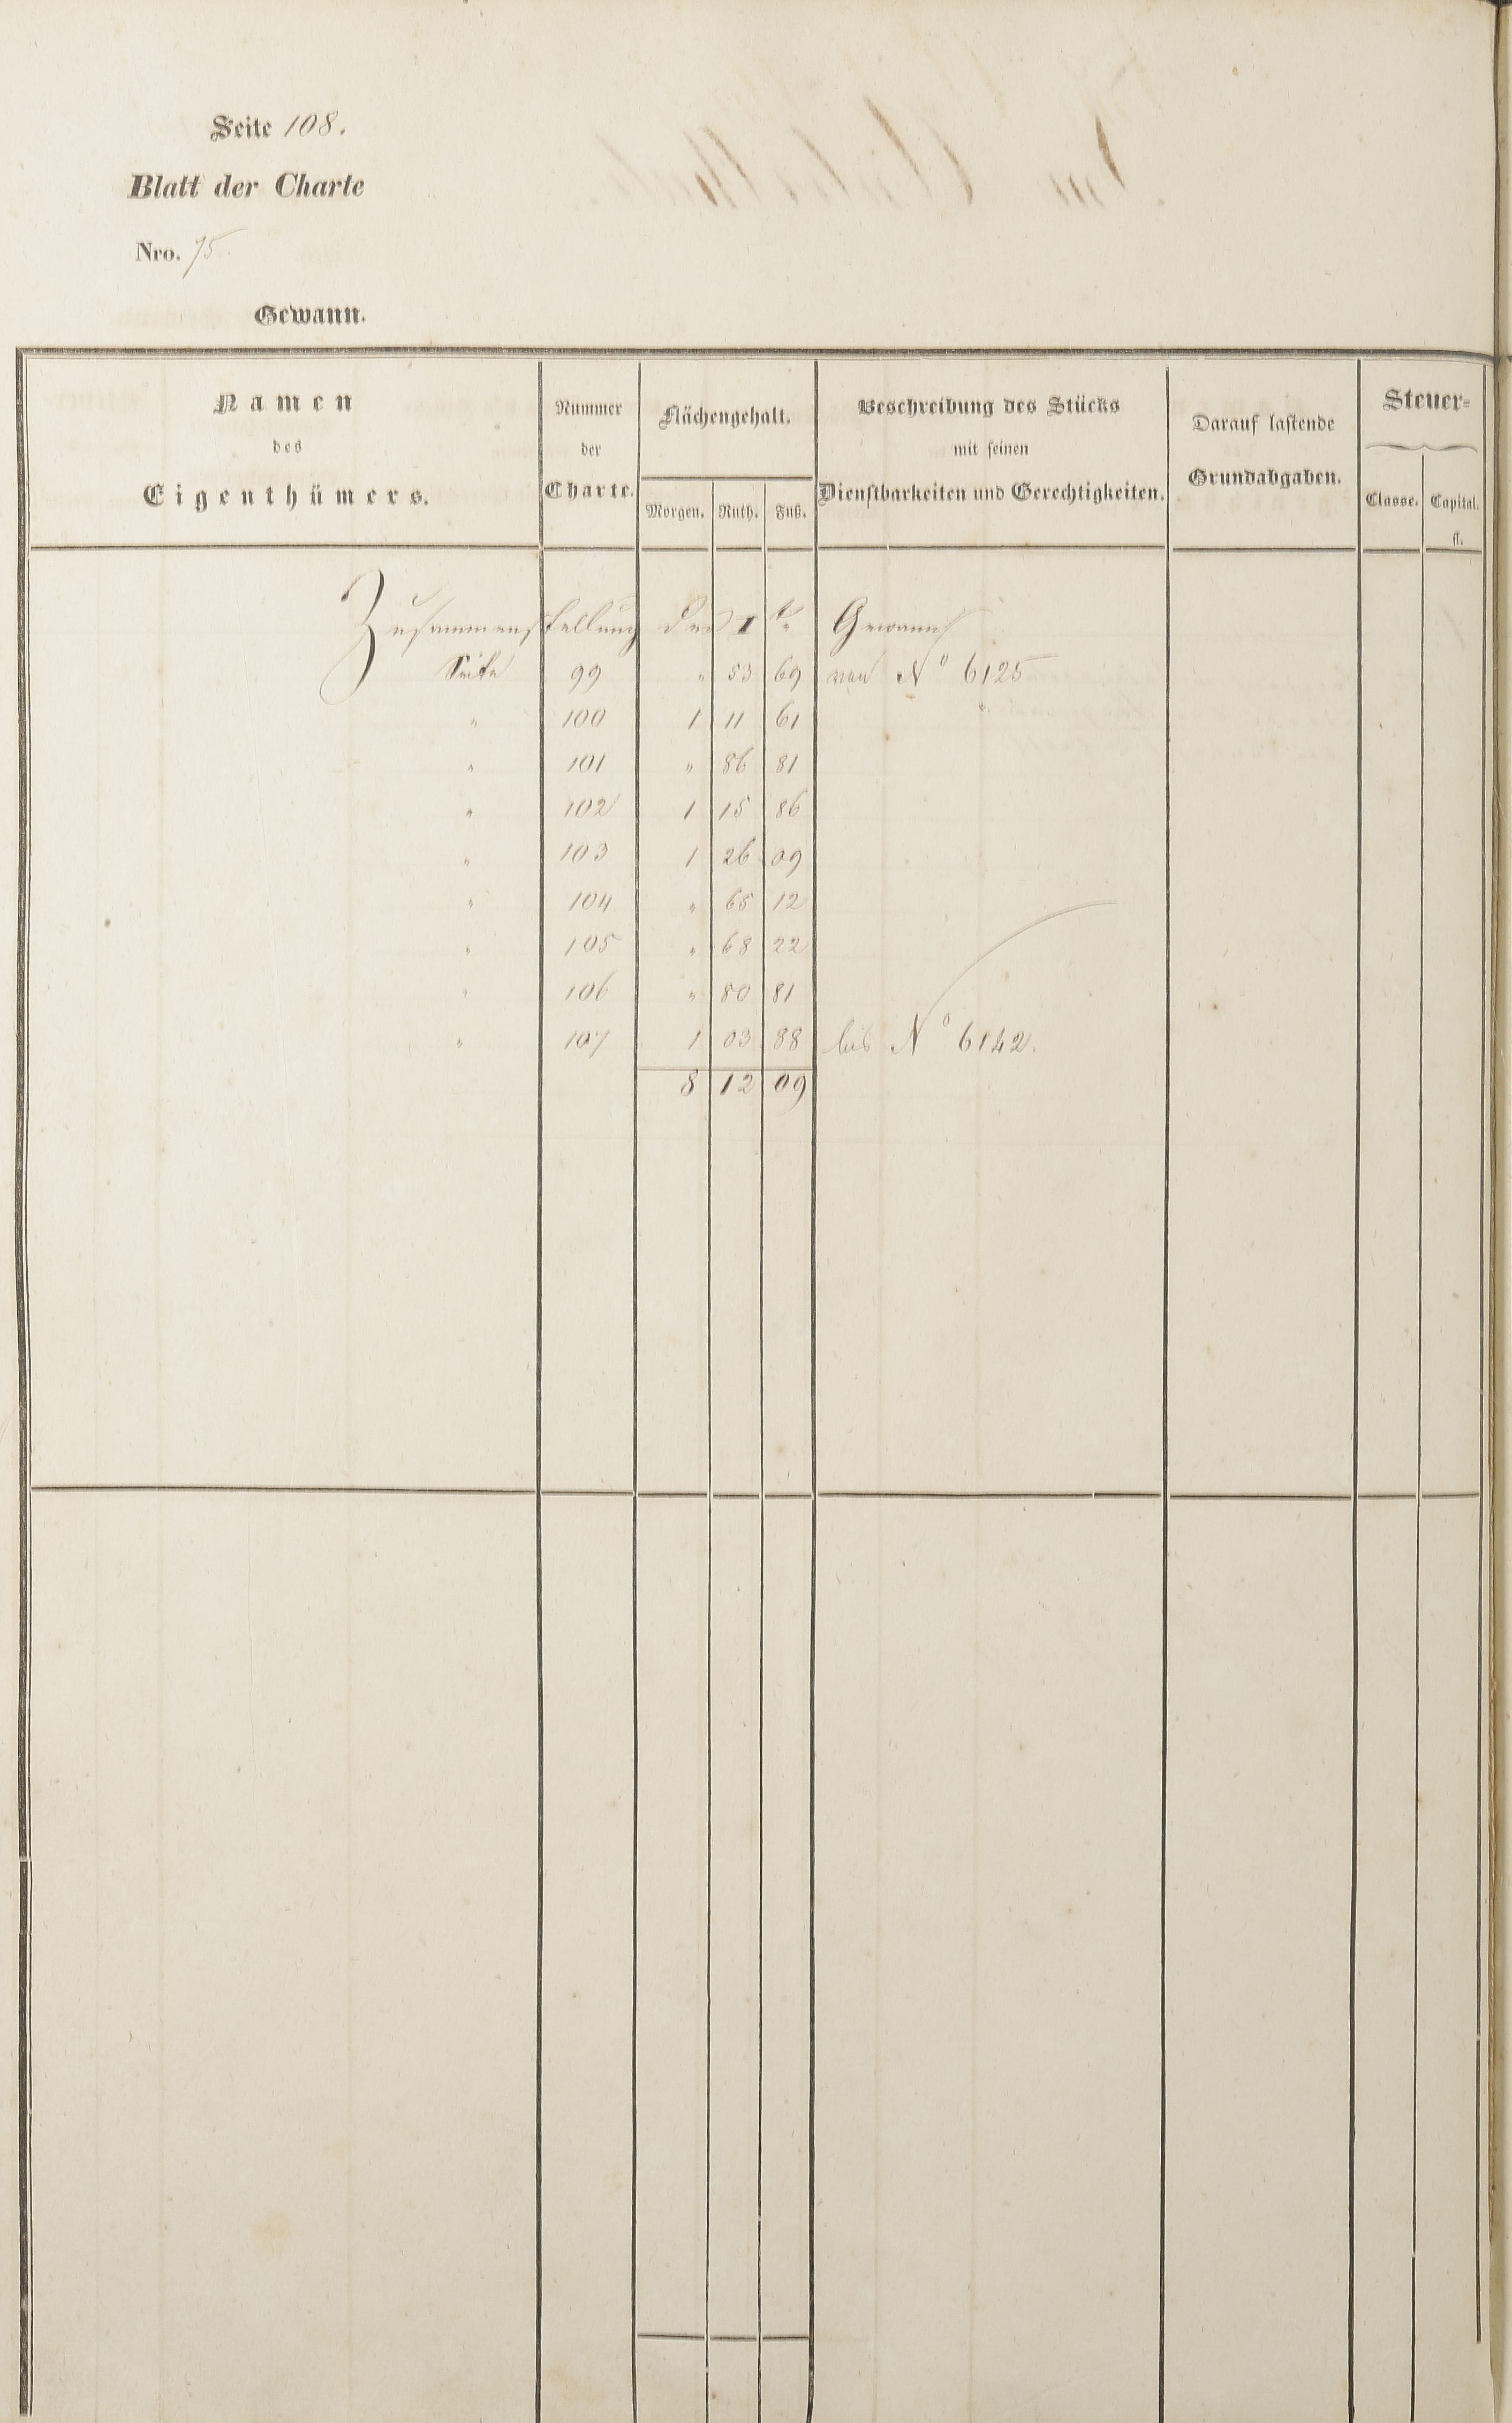 Seite 108.
Blatt der Charte
Nro. 75
Gewann.
Namen des Eigenthümers. Nummer der Charte. Flächengehalt. Morgen. Ruth. Fuß. Beschreibung des Stücks mit seinen Dienstbarkeiten und Gerechtigkeiten. Darauf lastende Grundabgaben. Steuer= Classe. Capital. fl.
Zusammenstellung der I te Gewann
Seite 99 " 53 69 von No 6125
" 100 1 11 61
" 101 " 86 81
" 102 1 15 86
" 103 1 26 09
" 104 " 65 12
" 105 " 68 22
" 106 " 80 81
" 107 1 03 88 bis No 6142.
8 12 09